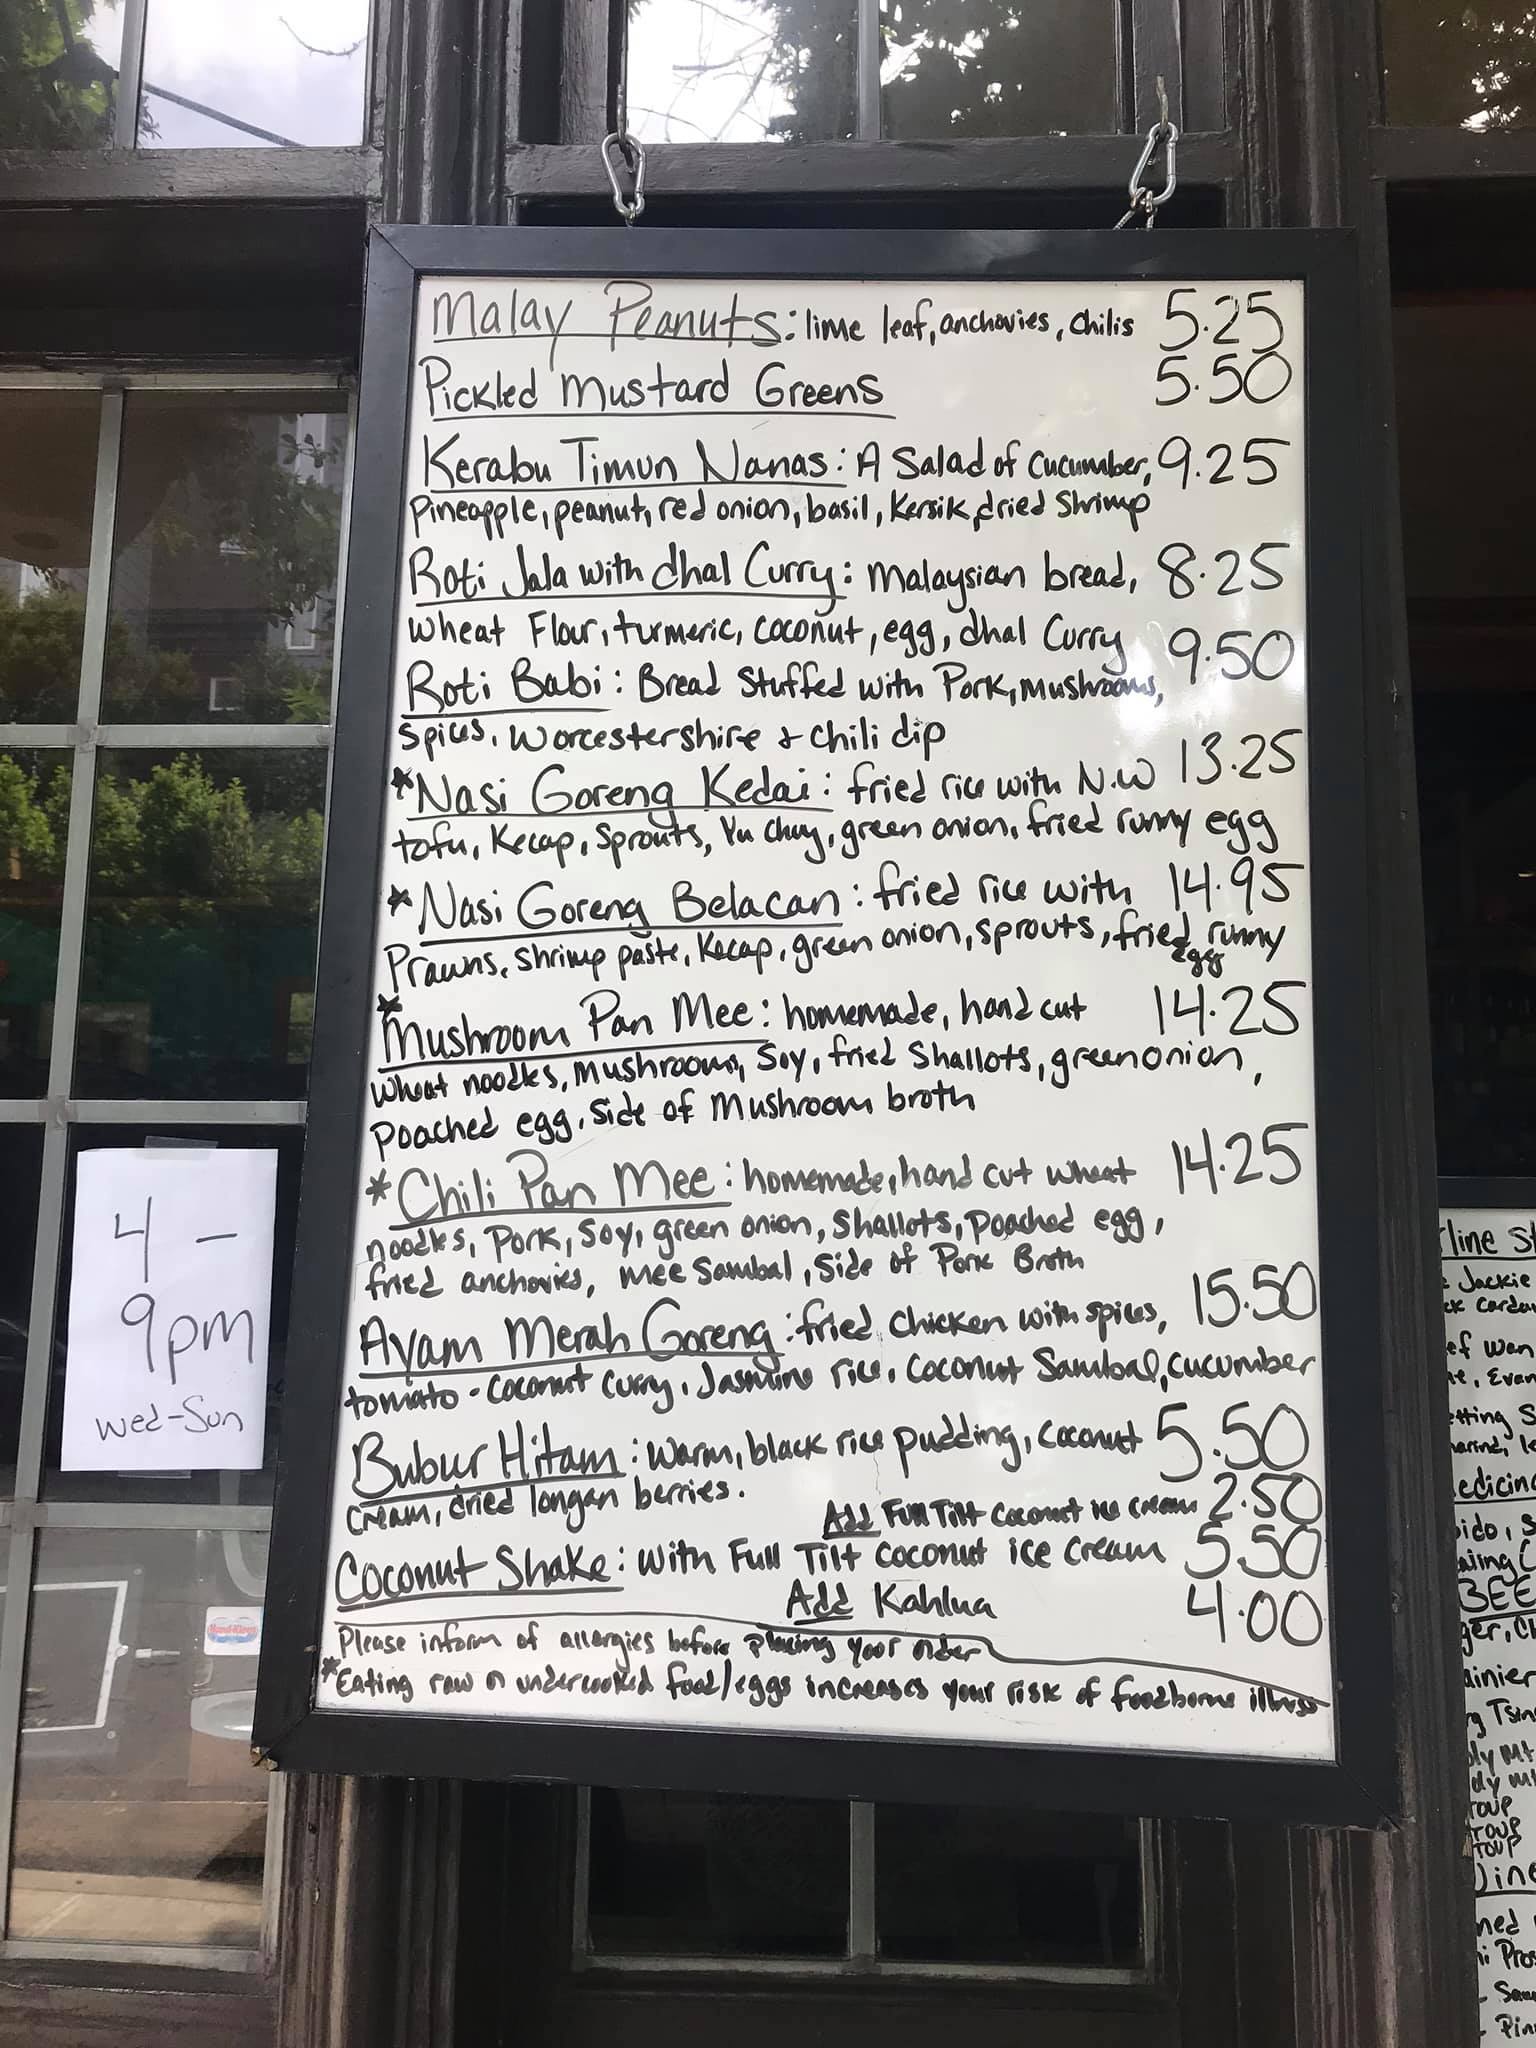 Malay Peanuts: lime leaf, anchovies, chilis 5.25
Pickled Mustard Greens 5.50
Kerabu Timun Nanas: A Salad of Cucumber, 9.25
pineapple, peanut, red onion, basil, Kersik, dried Shrimp
Roti Jala with dhal Curry: Malaysian bread, 8.25
wheat Flour, turmeric, coconut, egg, dhal Curry
Roti Babi: Bread Stuffed with Pork, mushrooms, 9.50
Spices, Worcestershire + chili dip
*Nasi Goreng Kedai: fried rice with N.W 13.25
tofu, Kecap, Sprouts, Yu Choy, green onion, fried runny egg
*Nasi Goreng Belacan: fried rice with 14.95
Prawns, Shrimp paste, Kecap, green onion, sprouts, fried runny
egg
*Mushroom Pan Mee: homemade, hand cut 14.25
wheat noodles, mushrooms, Soy, fried Shallots, green onion,
poached egg, side of Mushroom broth
*Chili Pan Mee: homemade, hand cut wheat 14.25
noodles, pork, soy, green onion, shallots, poached egg,
fried anchovies, mee Sambal, Side of Pork Broth
Ayam Merah Goreng: fried chicken with spices, 15.50
tomato-coconut curry, Jasmine rice, coconut Sambal, cucumber
Bubur Hitam: Warm, black rice pudding, coconut 5.50
cream, dried longan berries.
Add Full Tilt Coconut ice cream 2.50
Coconut Shake: with Full Tilt coconut ice cream 5.50
Add Kahlua 4.00
Please inform of allergies before placing your order
*Eating raw or undercooked food/eggs increases your risk of foodborne illness
4 -
9pm
Wed-Sun
Jackie
BEE